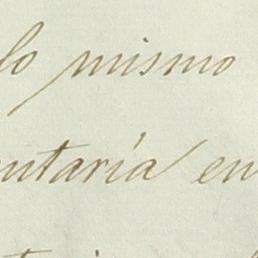 lo mismo
entaría en